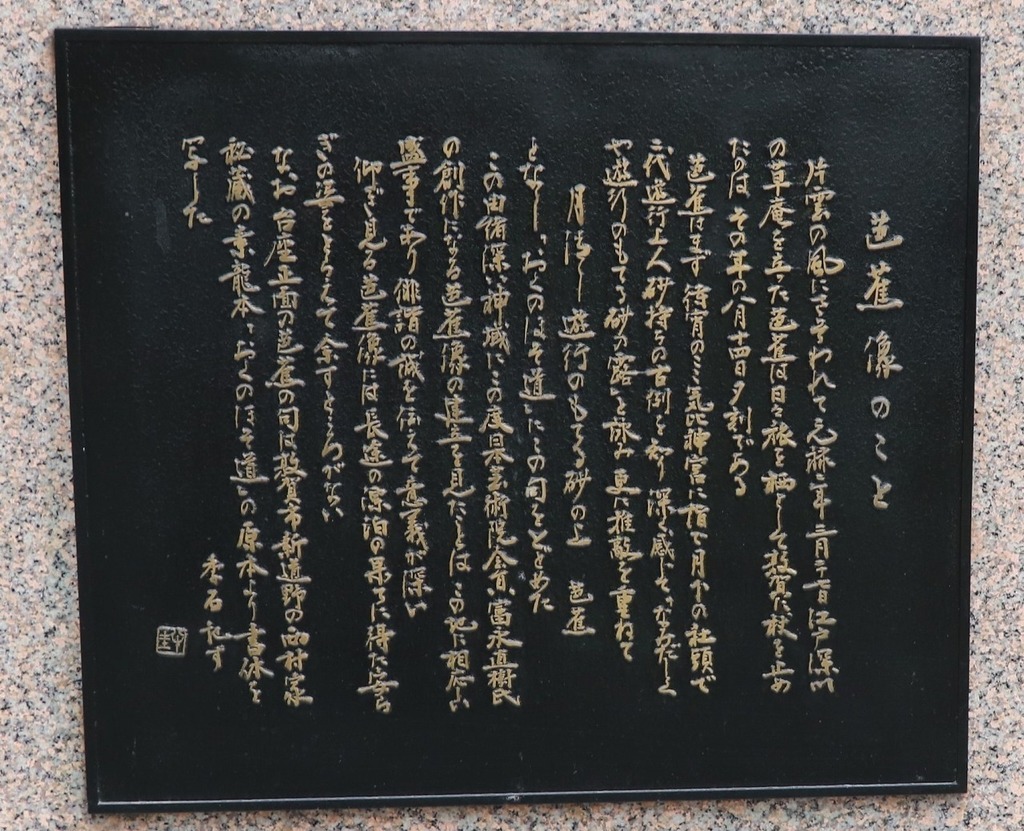 芭蕉像のこと
片雲の風にさそわれて元禄二年三月二十七日江戸深川
の草庵を立った芭蕉は日々旅を栖として敦賀に杖を止め
たのは その年の八月十四日夕刻である
芭蕉はまず 待宵のこ気比神宮に詣で月下の社頭で
二代遊行上人砂持ちの古例をきり 深く感じて なみだしく
や遊行のもてる砂の露 と詠み 更に推敲を重ねて
月清し 遊行のもてる砂の上 芭蕉
となし、おくのほそ道にこの句をとどめた
この由緒深い神域に この度日本芸術院会員、富永直樹氏
の創作になる芭蕉像の建立を見たことは、この地に相応しい
盛事であり 俳諧の誠を伝えて意義が深い
仰ぎ見る芭蕉像には長途の漂泊の果てに得た安ら
ぎの姿をとらえて余すところがない
なお 台座正面の芭蕉の句は敦賀市新道野の西村家
秘蔵の素龍本、おくのほそ道の原本より書体を
写した
李石 記す